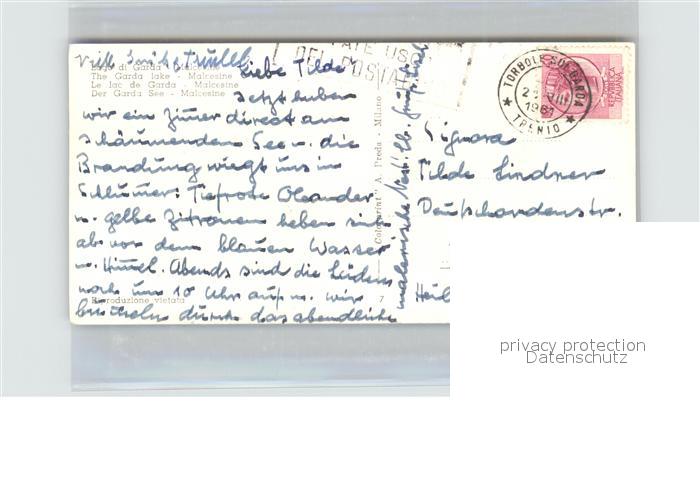 Lago di Garda - Malcesine
The Garda lake - Malcesine
Le lac de Garda - Malcesine
Der Garda See - Malcesine
Liebe Tilde
Jetzt haben
wir ein Zimmer direct am
schäumenden See u. die
Brandung wiegt uns in
Schlummer. Tiefrote Oleander
u. gelbe Zitronen heben sich
ab vor dem blauen Wasser
u. Himmel. Abends sind die Läden
noch um 10 Uhr auf u. wir
durch das abendliche
malerische Nest.
Riproduzione vietata
7
A. Preda - Milano
POSTA
TORBOLE SUL GARDA
TRENTO
1961
REPUBBLICA
ITALIANA
Signora
Tilde Lindner
Deutschordenstr.
Heil
privacy protection
Datenschutz